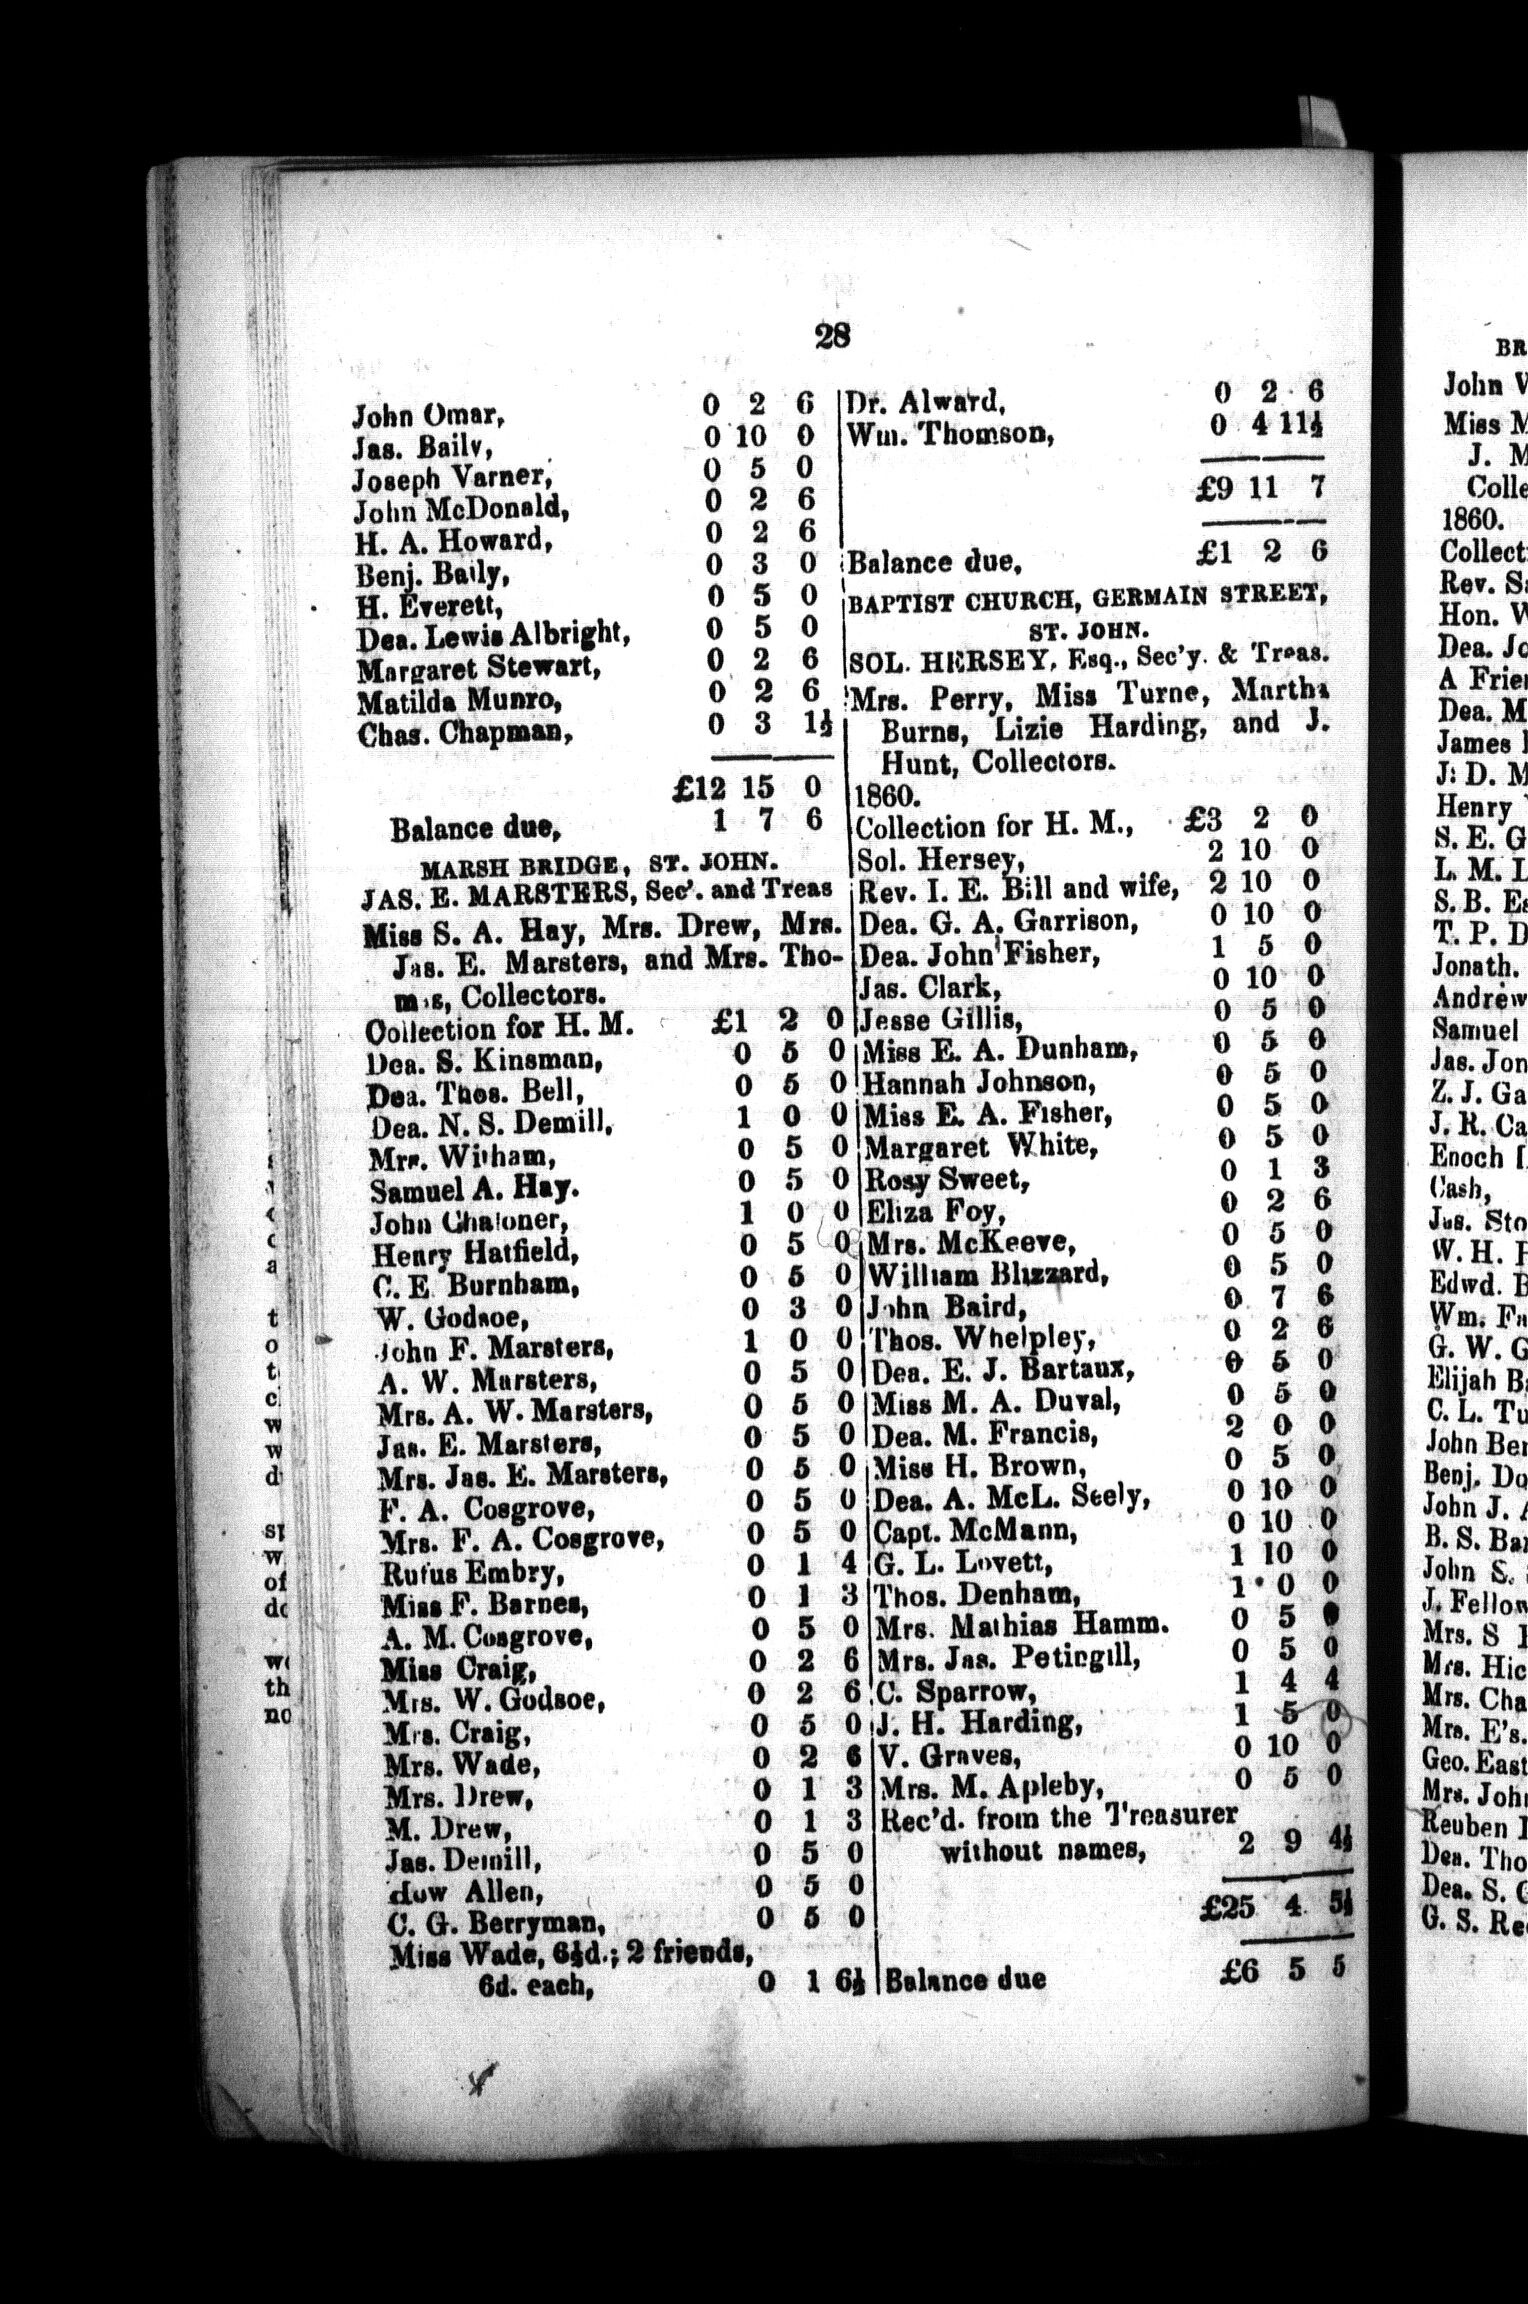 28
John Omar, 0 2 6
Jas. Baily, 0 10 0
Joseph Varner, 0 5 0
John McDonald, 0 2 6
H. A. Howard, 0 2 6
Benj. Baily, 0 3 0
H. Everett, 0 5 0
Dea. Lewis Albright, 0 5 0
Margaret Stewart, 0 2 6
Matilda Munro, 0 2 6
Chas. Chapman, 0 3 1½
£12 15 0
Balance due, 1 7 6
MARSH BRIDGE, ST. JOHN.
JAS. E. MARSTERS, Sec'. and Treas
Miss S. A. Hay, Mrs. Drew, Mrs.
Jas. E. Marsters, and Mrs. Tho-
mas, Collectors.
Collection for H. M. £1 2 0
Dea. S. Kinsman, 0 5 0
Dea. Thos. Bell, 0 5 0
Dea. N. S. Demill, 1 0 0
Mrs. Witham, 0 5 0
Samuel A. Hay. 0 5 0
John Chaloner, 1 0 0
Henry Hatfield, 0 5 0
C. E. Burnham, 0 5 0
W. Godsoe, 0 3 0
John F. Marsters, 1 0 0
A. W. Marsters, 0 5 0
Mrs. A. W. Marsters, 0 5 0
Jas. E. Marsters, 0 5 0
Mrs. Jas. E. Marsters, 0 5 0
F. A. Cosgrove, 0 5 0
Mrs. F. A. Cosgrove, 0 5 0
Rufus Embry, 0 1 4
Miss F. Barnes, 0 1 3
A. M. Cosgrove, 0 5 0
Miss Craig, 0 2 6
Mrs. W. Godsoe, 0 2 6
Mrs. Craig, 0 5 0
Mrs. Wade, 0 2 6
Mrs. Drew, 0 1 3
M. Drew, 0 1 3
Jas. Demill, 0 5 0
dow Allen, 0 5 0
C. G. Berryman, 0 5 0
Miss Wade, 6½d.; 2 friends,
6d. each, 0 1 6½
Dr. Alward, 0 2 6
Wm. Thomson, 0 4 11½
£9 11 7
Balance due, £1 2 6
BAPTIST CHURCH, GERMAIN STREET,
ST. JOHN.
SOL. HERSEY, Esq., Sec'y. & Treas.
Mrs. Perry, Miss Turne, Martha
Burns, Lizie Harding, and J.
Hunt, Collectors.
1860.
Collection for H. M., £3 2 0
Sol. Hersey, 2 10 0
Rev. I. E. Bill and wife, 2 10 0
Dea. G. A. Garrison, 0 10 0
Dea. John Fisher, 1 5 0
Jas. Clark, 0 10 0
Jesse Gillis, 0 5 0
Miss E. A. Dunham, 0 5 0
Hannah Johnson, 0 5 0
Miss E. A. Fisher, 0 5 0
Margaret White, 0 5 0
Rosy Sweet, 0 1 3
Eliza Foy, 0 2 6
Mrs. McKeeve, 0 5 0
William Blizzard, 0 5 0
John Baird, 0 7 6
Thos. Whelpley, 0 2 6
Dea. E. J. Bartaux, 0 5 0
Miss M. A. Duval, 0 5 0
Dea. M. Francis, 2 0 0
Miss H. Brown, 0 5 0
Dea. A. McL. Seely, 0 10 0
Capt. McMann, 0 10 0
G. L. Lovett, 1 10 0
Thos. Denham, 1 0 0
Mrs. Mathias Hamm. 0 5 0
Mrs. Jas. Petingill, 0 5 0
C. Sparrow, 1 4 4
J. H. Harding, 1 5 0
V. Graves, 0 10 0
Mrs. M. Apleby, 0 5 0
Rec'd. from the Treasurer
without names, 2 9 4½
£25 4 5½
Balance due £6 5 5
BR
John
Miss
J.
Colle
1860.
Collect
Rev.
Hon.
Dea.
A Frie
Dea.
James
J. D.
Henry
S. E. G
L. M. L
S. B. Es
T. P. D
Jonath.
Andrew
Samuel
Jas. Jon
Z. J. Ga
J. R. Ca
Enoch
Cash,
Jas. Sto
W. H.
Edwd. B
Wm. Fa
G. W. G
Elijah Ba
C. L. Tu
John Ber
Benj. Do
John J.
B. S. Bar
John S.
J. Fellow
Mrs. S
Mrs. Hic
Mrs. Cha
Mrs. E's.
Geo. East
Mrs. John
Reuben
Dea. Tho
Dea. S.
G. S. Re